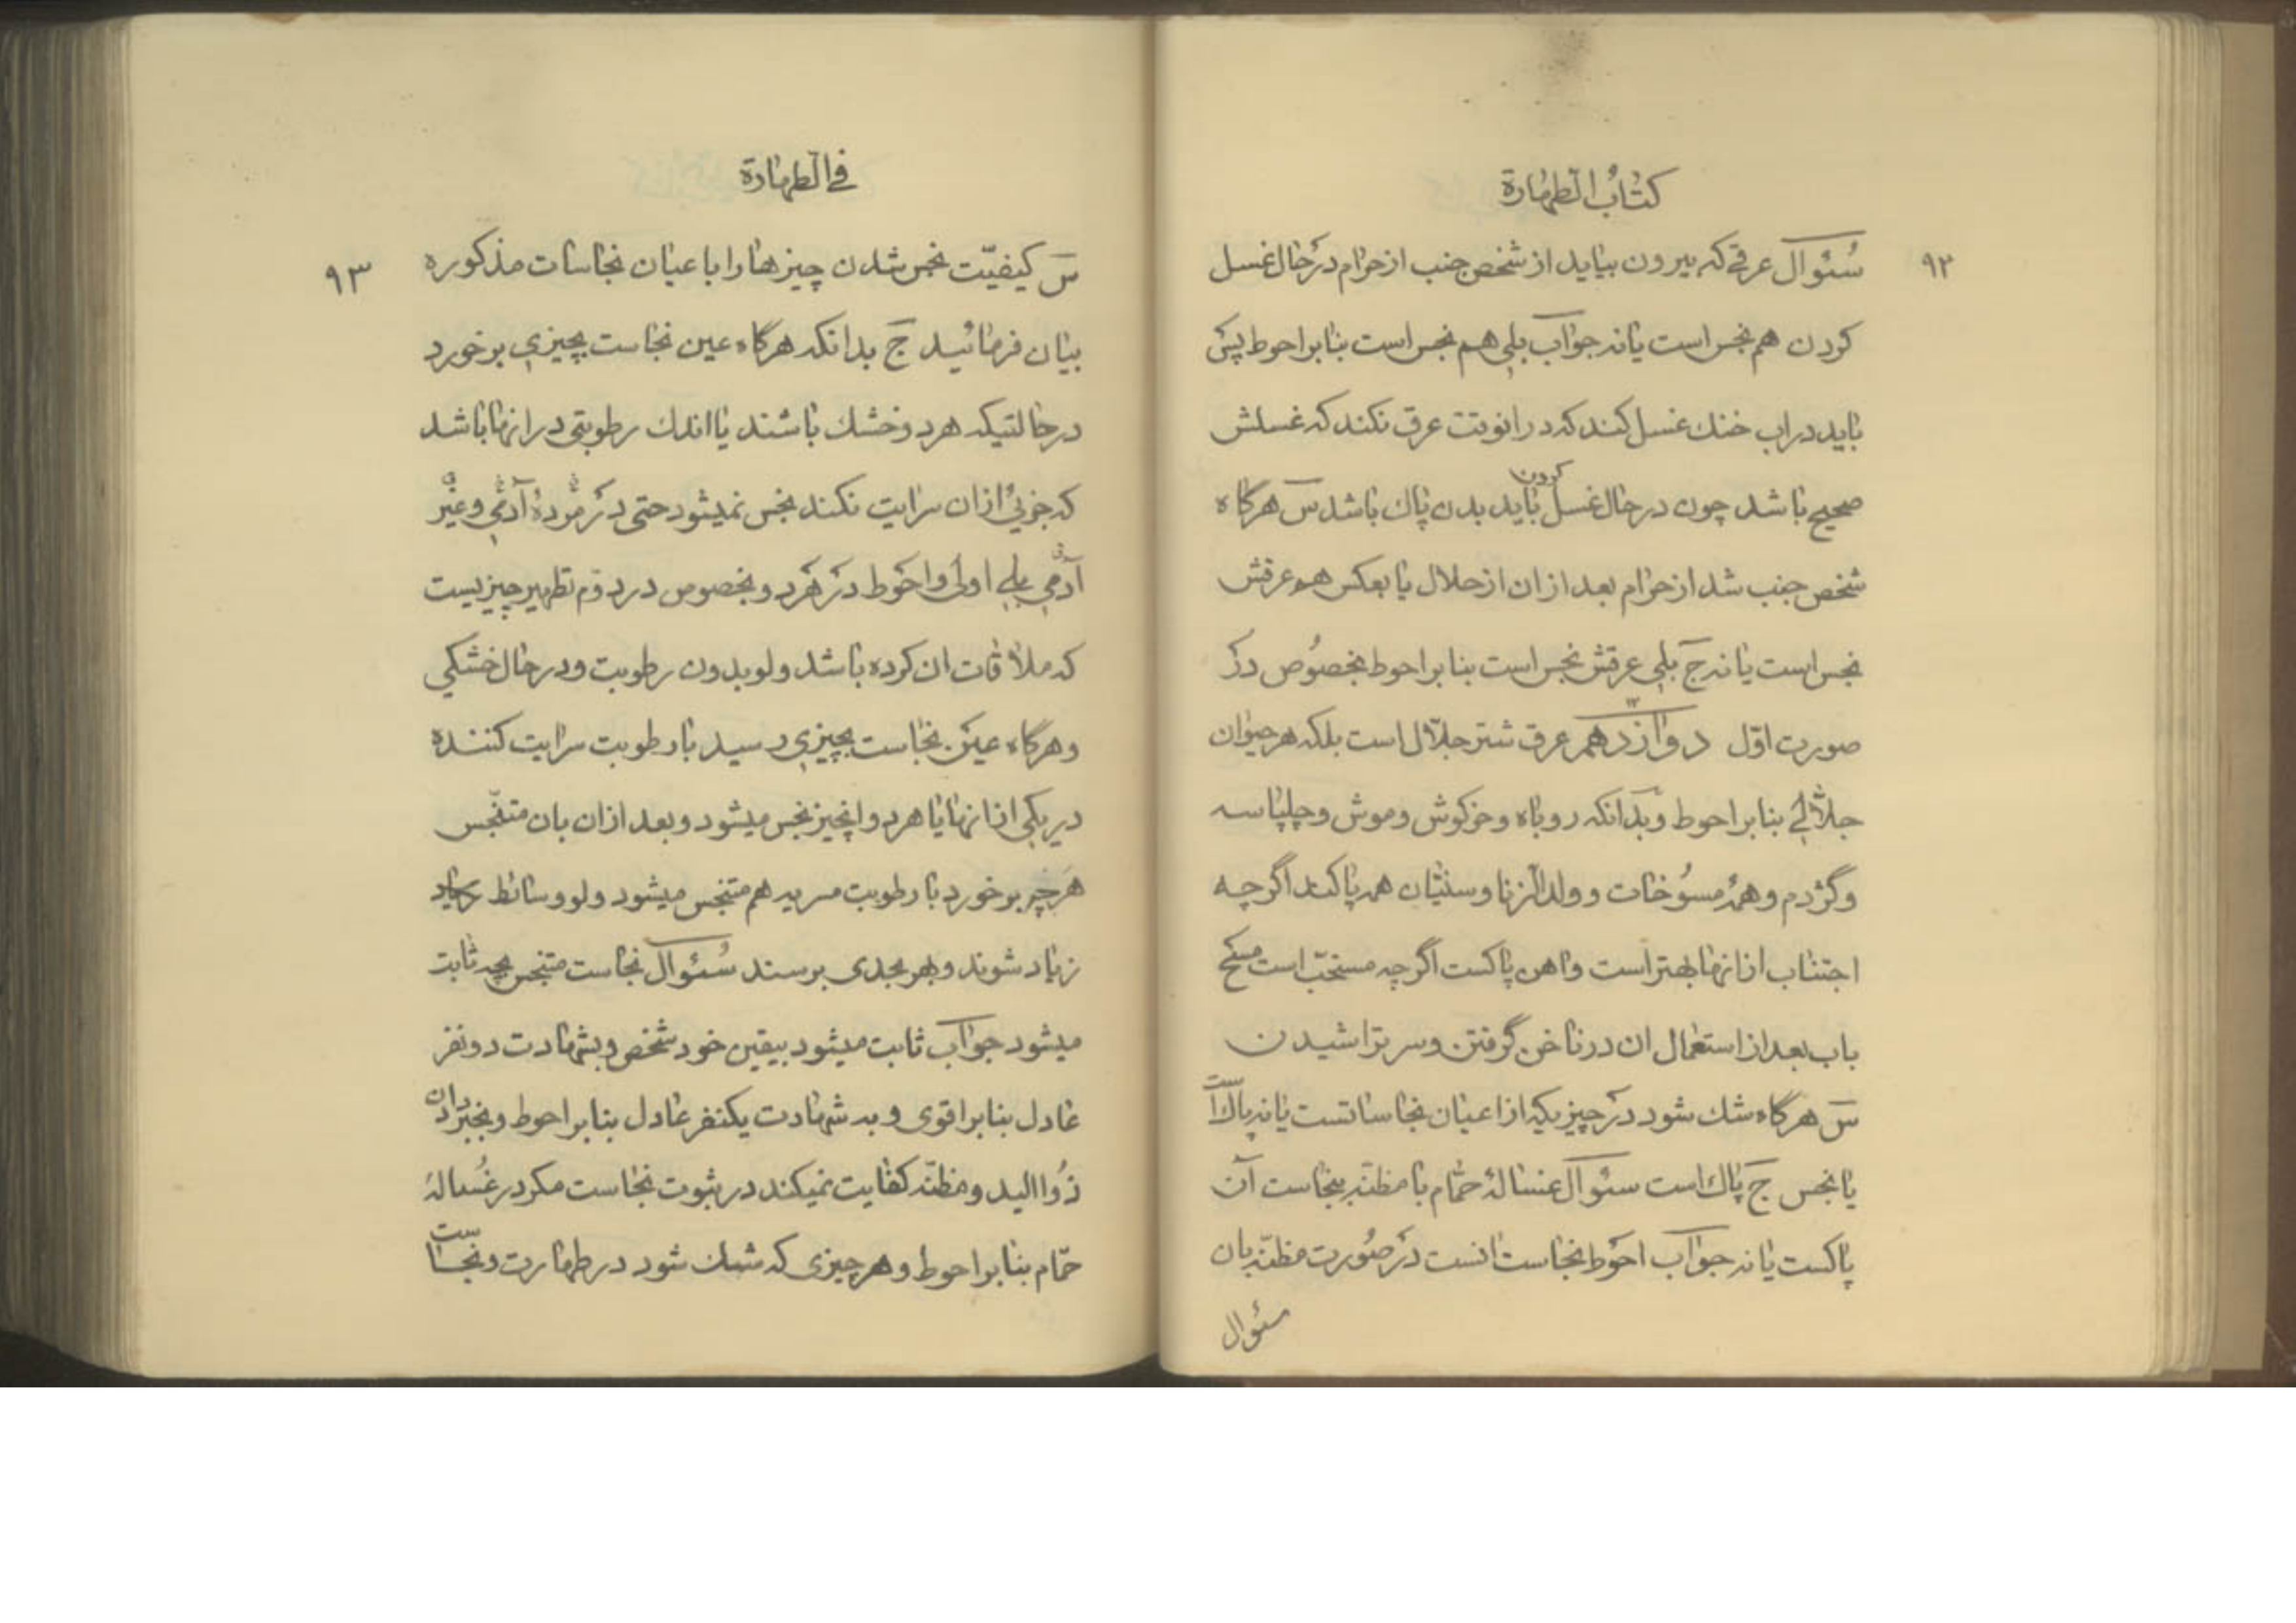 كتاب الطهارة
٩٢
سئوال عرقی که بیرون بیاید از شخص جنب از حرام در حال غسل
کردن هم نجس است یا نه جواب بلی هم نجس است بنا بر احوط پس
باید در اب خنك غسل کند که در انوقت عرق نکند که غسلش
صحیح باشد چون در حال غسل کردن باید بدن پاك باشد س هرگاه
شخص جنب شد از حرام بعد از ان از حلال یا بعکس هم عرقش
نجس است یا نه ج بلی عرقش نجس است بنا بر احوط بخصوص در
صورت اوّل دوازدهم ۱۲ عرق شتر جلّال است بلکه هر حیوان
جلّالی بنا بر احوط و بدانکه روباه و خرکوش و موش و چلپاسه
و گژدم و همهٔ مسوخات و ولد الزنا و سنیّان همه پاکند اگر چه
اجتناب از انها بهتر است و اهن پاکست اگر چه مستحبّ است مسح
باب بعد از استعمال ان در ناخن گرفتن و سر تراشیدن
س هرگاه شك شود در چیزیکه از اعیان نجاساتست یا نه پاك است
یا نجس ج پاك است سئوال غسالهٔ حمّام با مظنّه بنجاست آن
پاکست یا نه جواب احوط نجاست انست در صورت مظنّه بان
سئوال
فی الطهارة
٩٣
س کیفیّت نجس شدن چیزها را با عیان نجاسات مذکوره
بیان فرمائید ج بدانکه هرگاه عین نجاست بچیزی بر خورد
در حالتیکه هر دو خشك باشند یا اندك رطوبتی در انها باشد
که جزئی از ان سرایت نکند نجس نمیشود حتی در مردهٔ آدمی و غیر
آدمی بلی اولی و احوط در هر دو و بخصوص در دوّم تطهیر چیزیست
که ملاقات ان کرده باشد و لو بدون رطوبت و در حال خشکی
و هرگاه عین نجاست بچیزی رسید با رطوبت سرایت کننده
در یکی از انها یا هر دو انچیز نجس میشود و بعد از ان بان متنجّس
هر چیز بر خورد با رطوبت مسریه هم متنجس میشود و لو وسائط
زیاد شوند و بهر بحدی برسند سئوال نجاست متنجس بچه ثابت
میشود جواب ثابت میشود بیقین خود شخص و بشهادت دو نفر
عادل بنا بر اقوی و به شهادت یکنفر عادل بنا بر احوط و بخبر دادن
ذو الید و مظنّه کفایت نمیکند در ثبوت نجاست مکر در غسالهٔ
حمّام بنا بر احوط و هر چیزی که شك شود در طهارت و نجاست